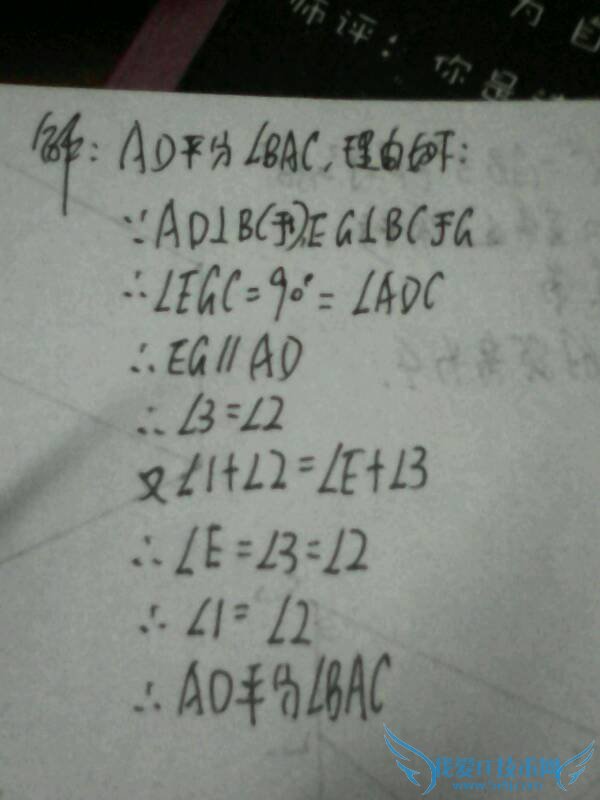 为自
师评:你是
解:AD平分∠BAC,理由如下:
∵AD⊥BC于D,EG⊥BC于G
∴∠EGC=90°=∠ADC
∴EG∥AD
∴∠3=∠2
又∠1+∠2=∠E+∠3
∴∠E=∠3=∠2
∴∠1=∠2
∴AD平分∠BAC